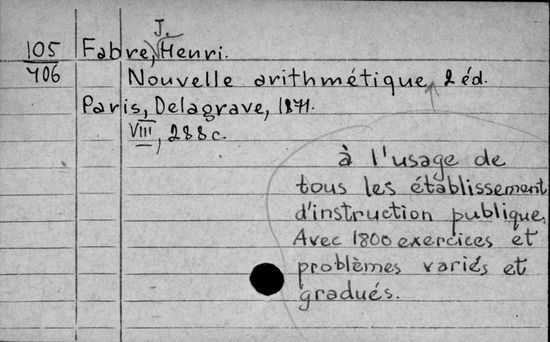 J.
105 Fabre, Henri.
706 Nouvelle arithmétique, 2 éd.
Paris, Delagrave, 1871.
VIII, 288 c.
à l'usage de
tous les établissement
d'instruction publique,
Avec 1800 exercices et
problèmes variés et
gradués.